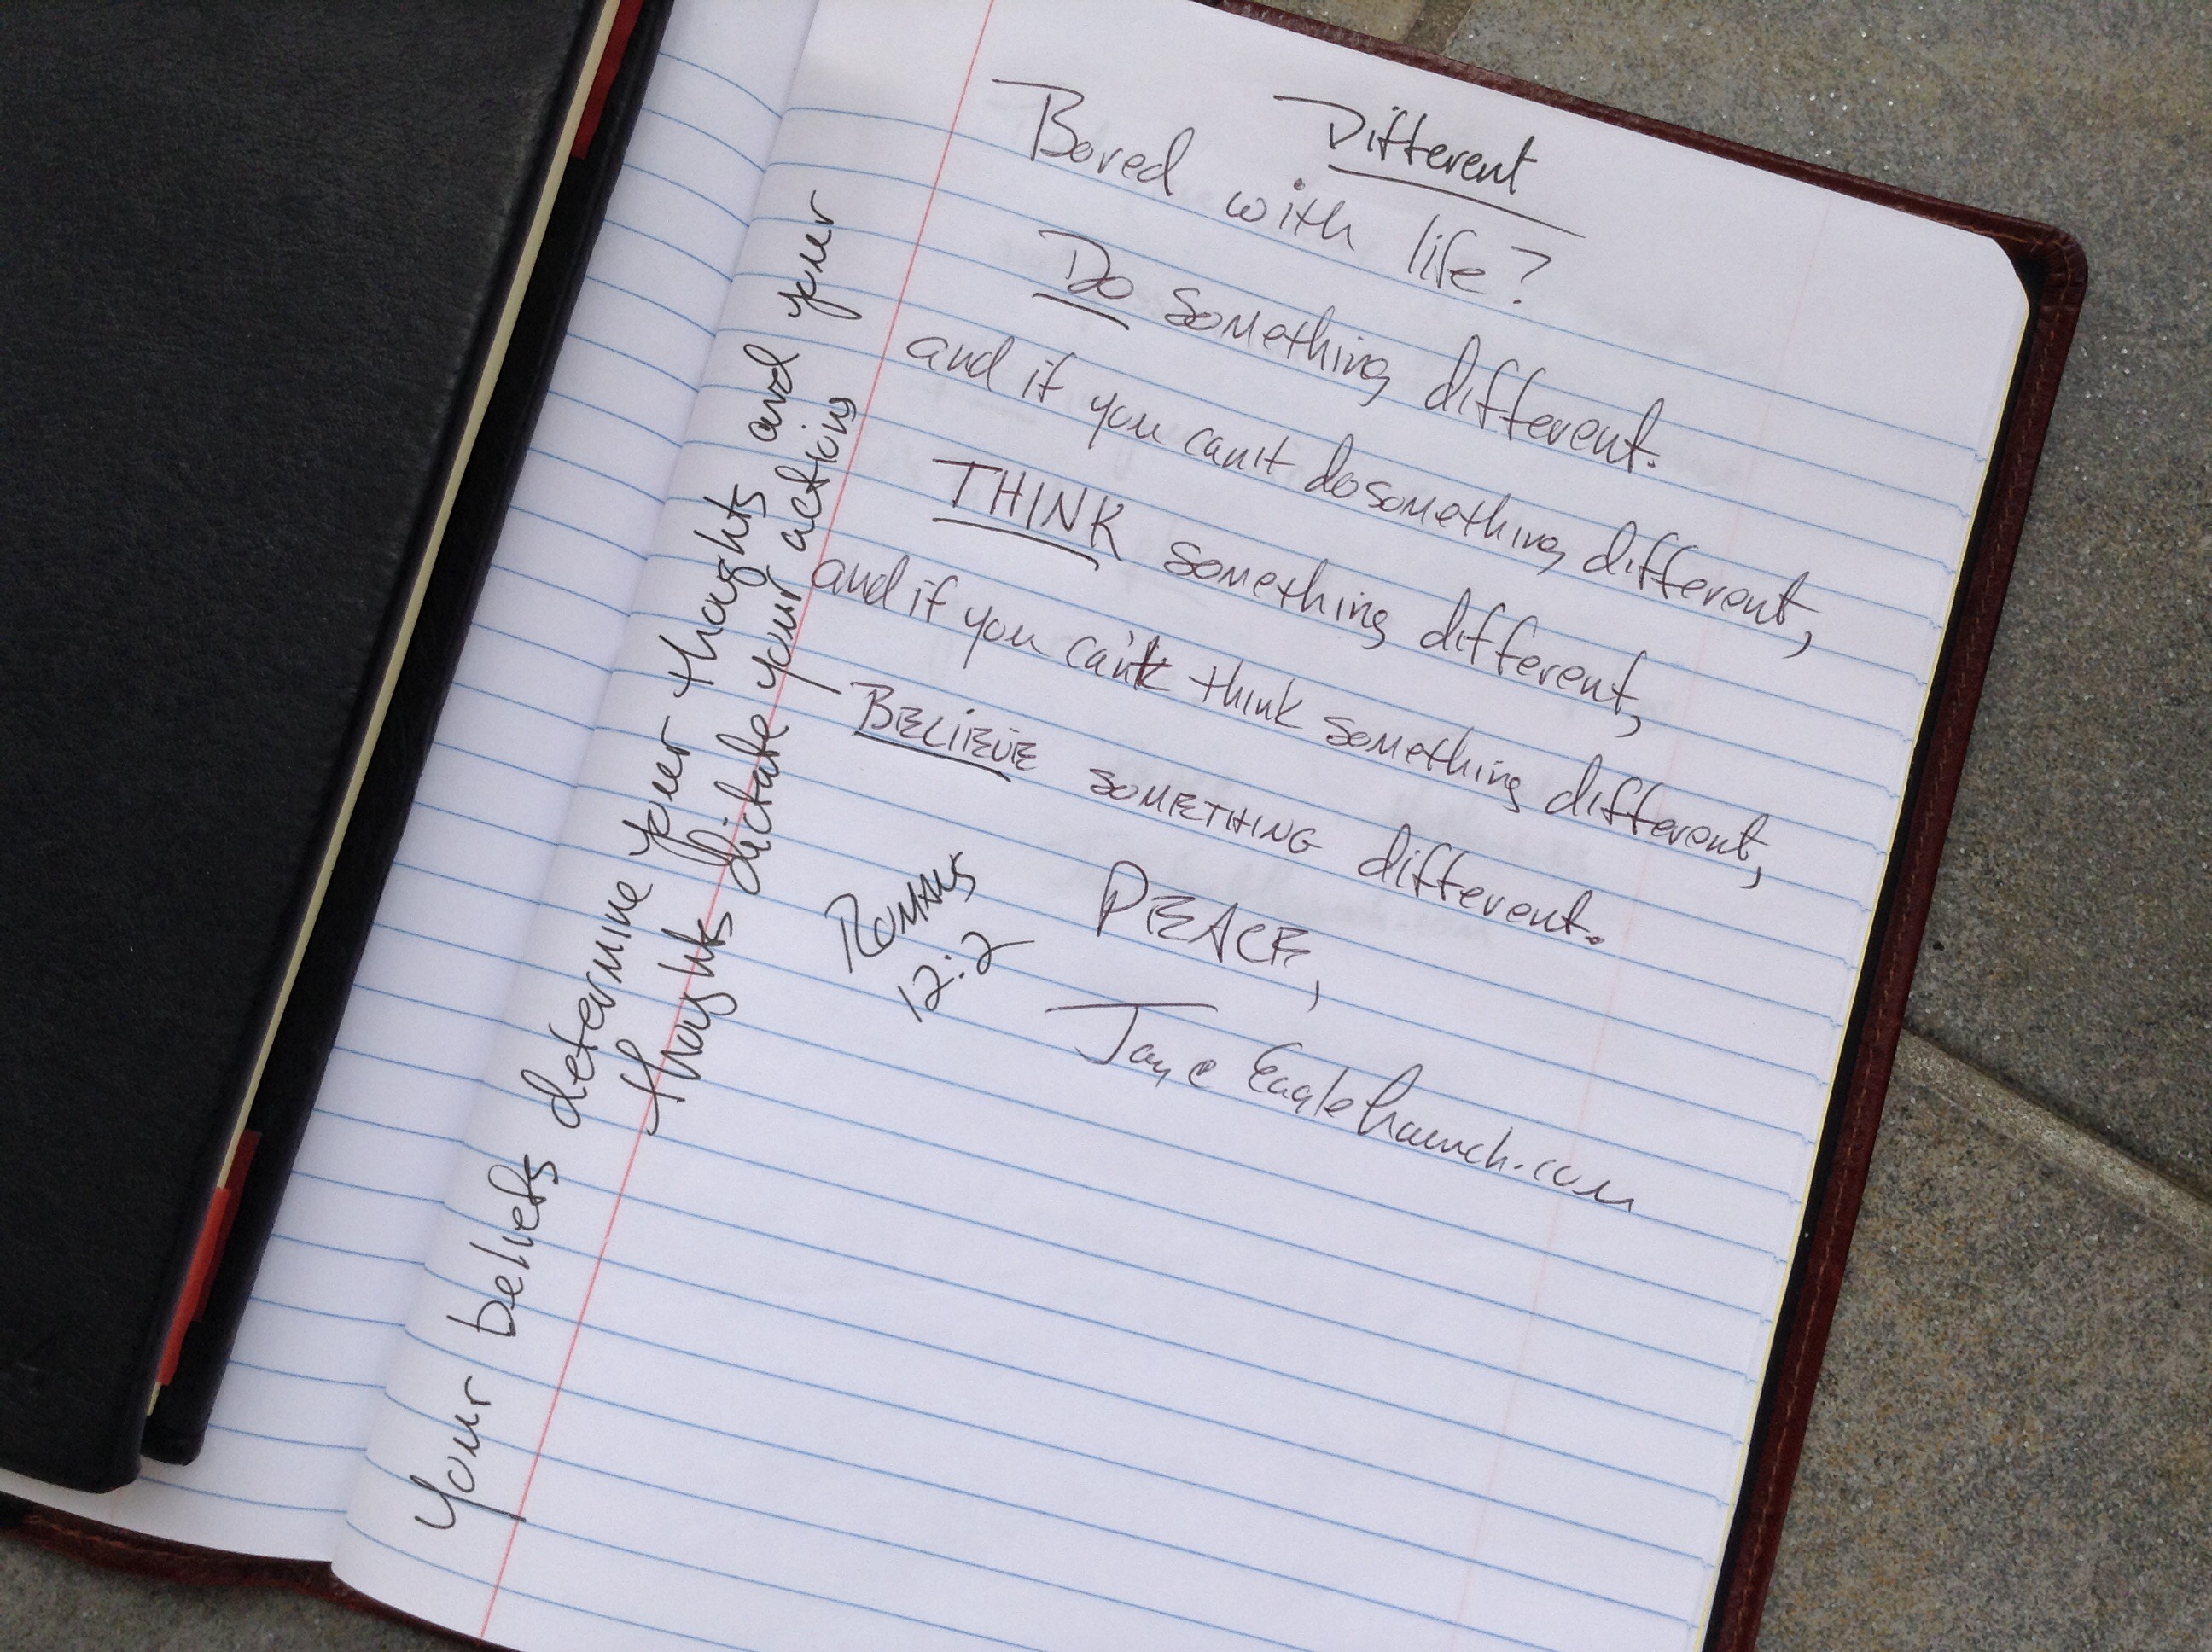 Different
Bored with life?
Do something different.
and if you can't do something different,
THINK something different,
and if you can't think something different,
BELIEVE SOMETHING different.
PEACE,
ROMANS
12:2
Jayce Eaglelaunch.com
Your beliefs determine your thoughts and your
thoughts dictate your actions